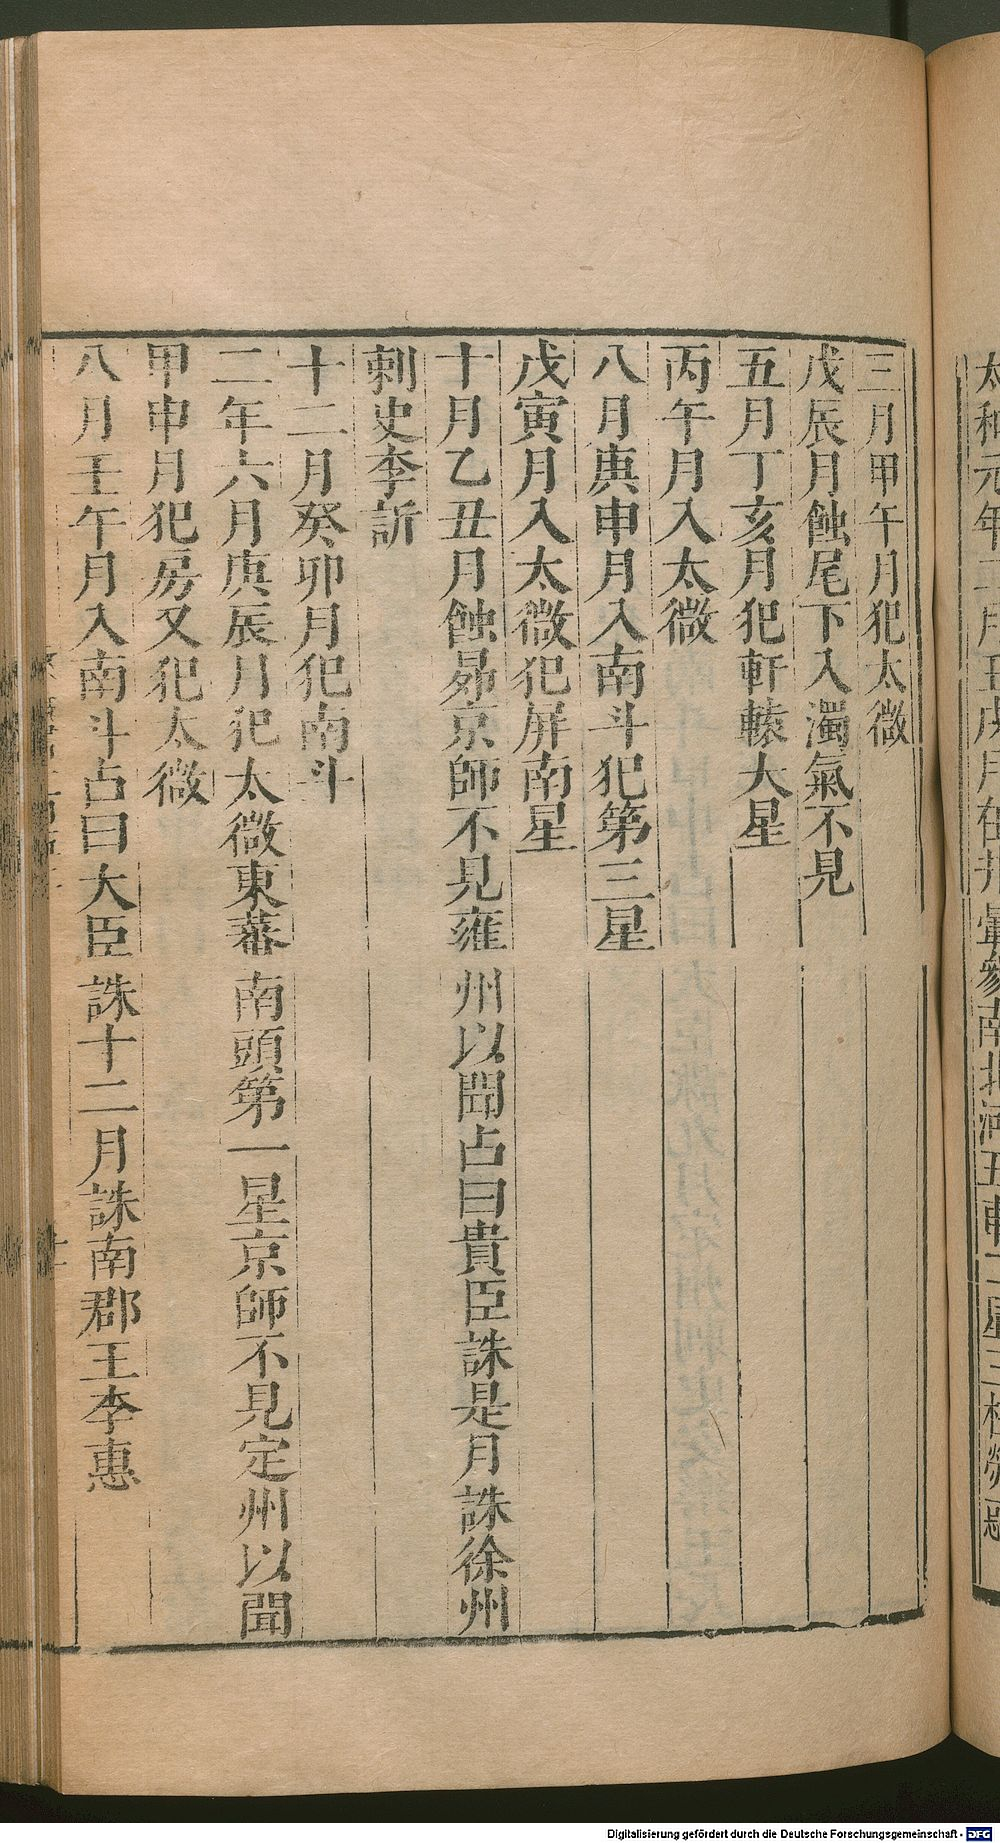 三月甲午月犯太微
戊辰月蝕尾下入濁氣不見
五月丁亥月犯軒轅大星
丙午月入太微
八月庚申月入南斗犯第三星
戊寅月入太微犯屏南星
十月乙丑月蝕昴京師不見雍州以聞占曰貴臣誅是月誅徐州
刺史李訢
十二月癸卯月犯南斗
二年六月庚辰月犯太微東蕃南頭第一星京師不見定州以聞
甲申月犯房又犯太微
八月壬午月入南斗占曰大臣誅十二月誅南郡王李惠
Digitalisierung gefördert durch die Deutsche Forschungsgemeinschaft - DFG